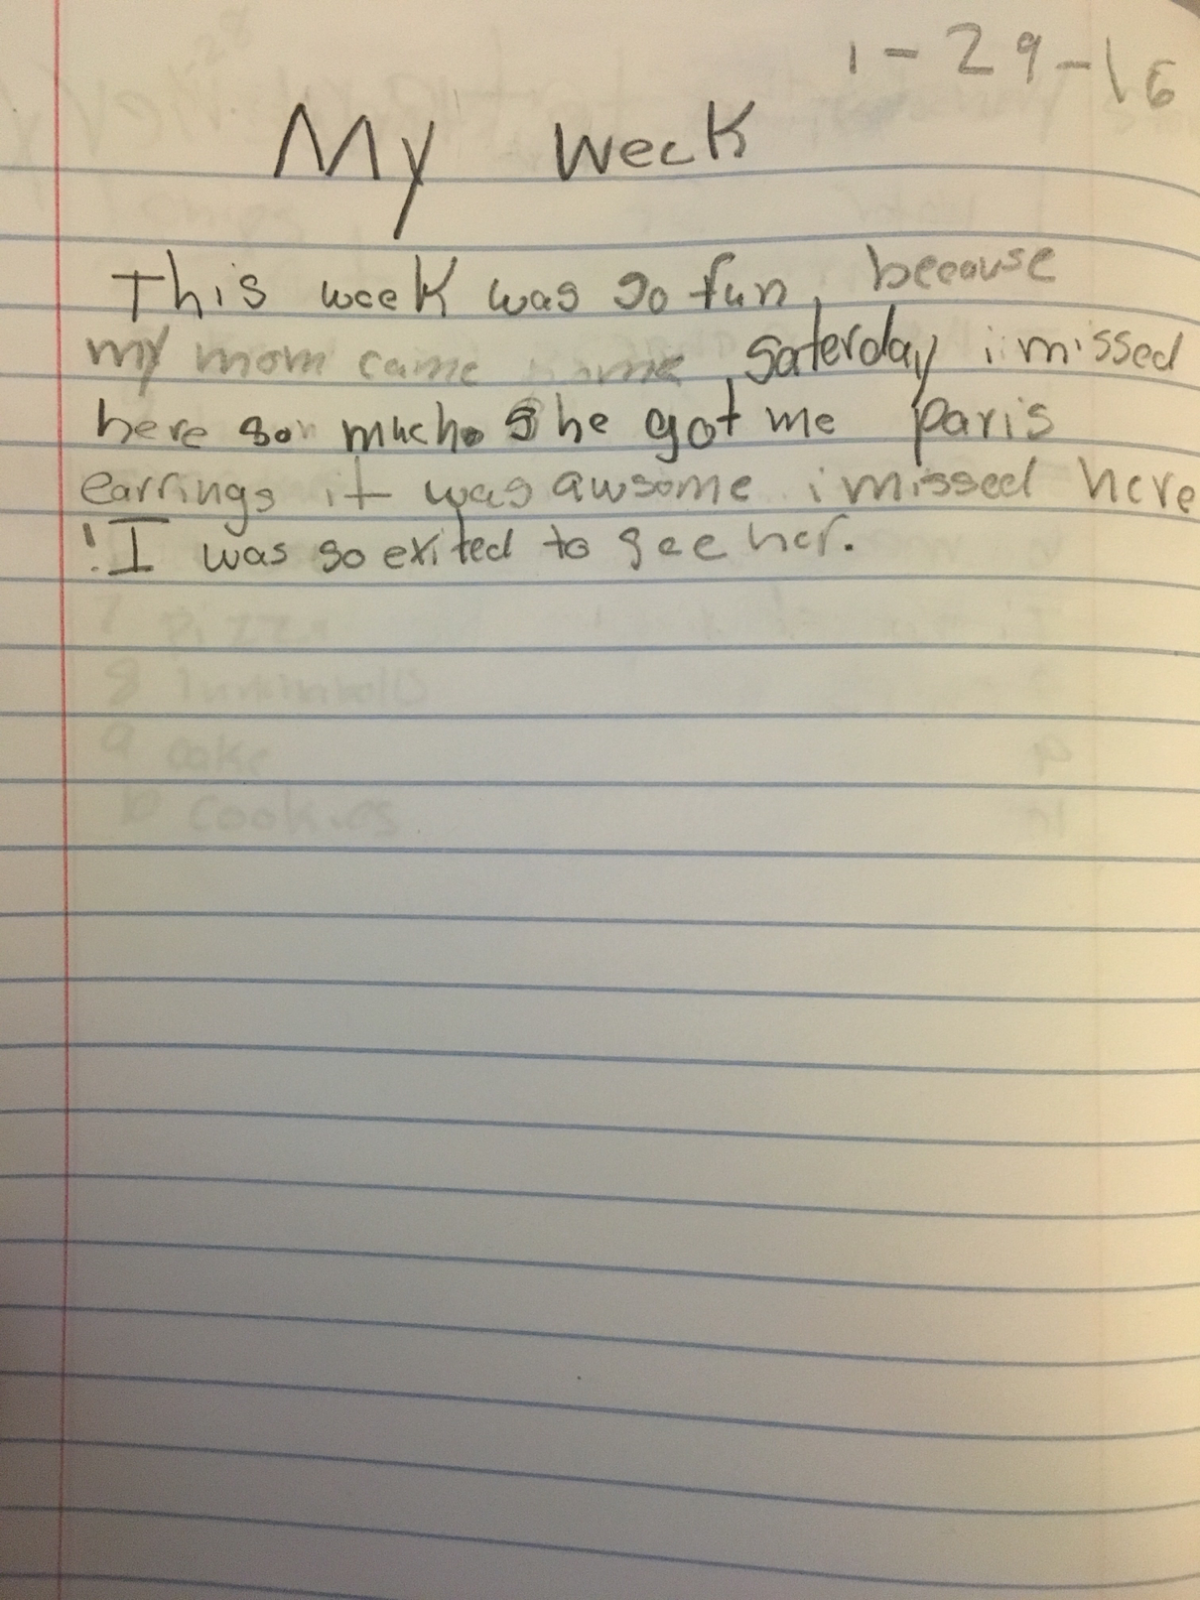 1-29-16
My week
This week was so fun, because
my mom came home, saterday i missed
here so much. She got me paris
earrings it was awsome i missed here
! I was so exited to see her.
7 pizza
8
9 cake
10 cookies